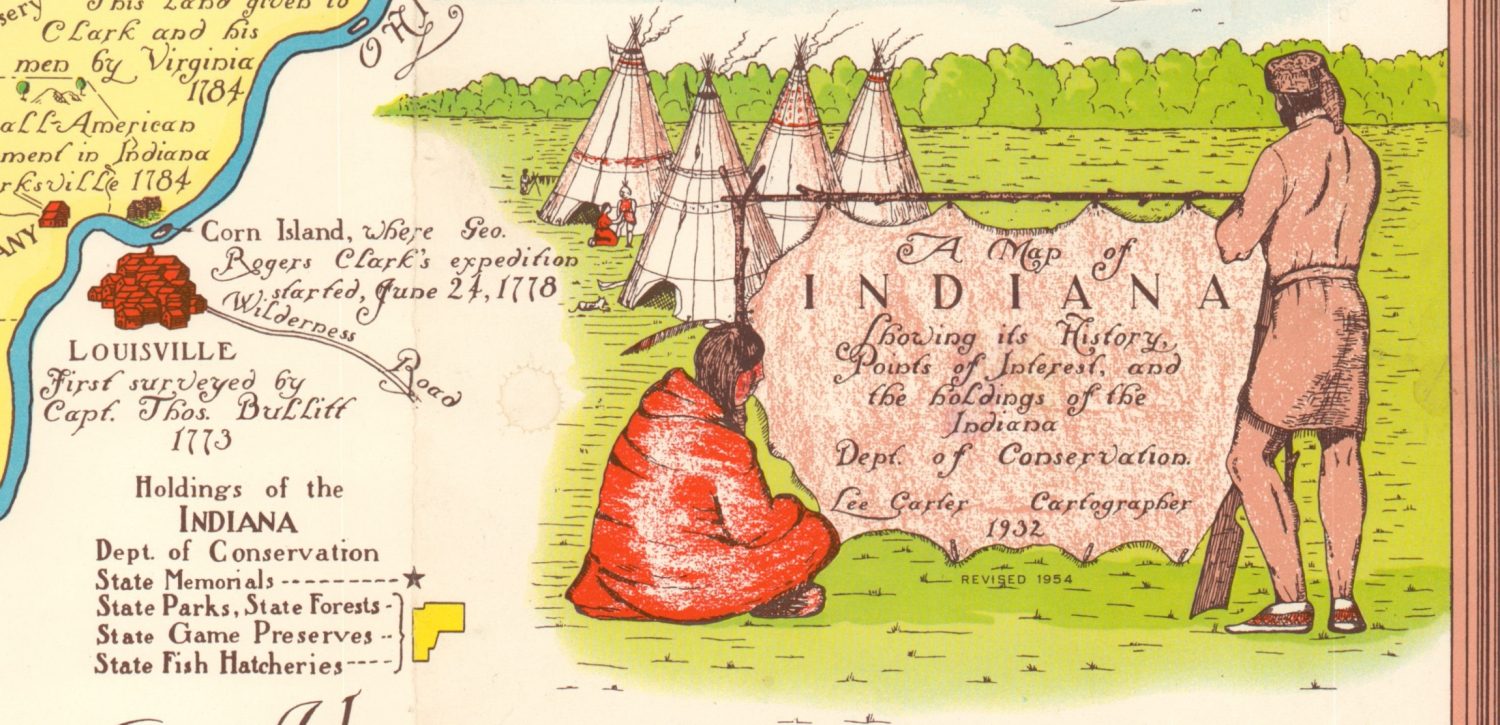 This Land given to
Clark and his
men by Virginia
1784
all-American
in Indiana
1784
OHI
Corn Island, where Geo.
Rogers Clark's expedition
started, June 24, 1778
Wilderness
Road
LOUISVILLE
First surveyed by
Capt. Thos. Bullitt
1773
Holdings of the
INDIANA
Dept. of Conservation
State Memorials
State Parks, State Forests
State Game Preserves
State Fish Hatcheries
A Map of
INDIANA
Showing its History,
Points of Interest, and
the holdings of the
Indiana
Dept. of Conservation.
Lee Carter Cartographer
1932
REVISED 1954